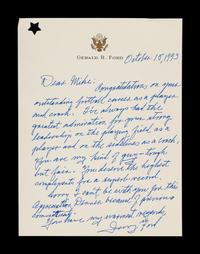 GERALD R. FORD
October 15, 1993
Dear Mike:
Congratulations on your
outstanding football career as a player
and coach. I've always had the
greatest admiration for your strong
leadership on the playing field as a
player and on the sidelines as a coach,
You are my kind of guy - tough
but fair. You deserve the highest
compliments for a superb record.
Sorry I can't be with you for the
Appreciation Dinner because of previous
commitments.
You have my warmest regards,
Jerry Ford